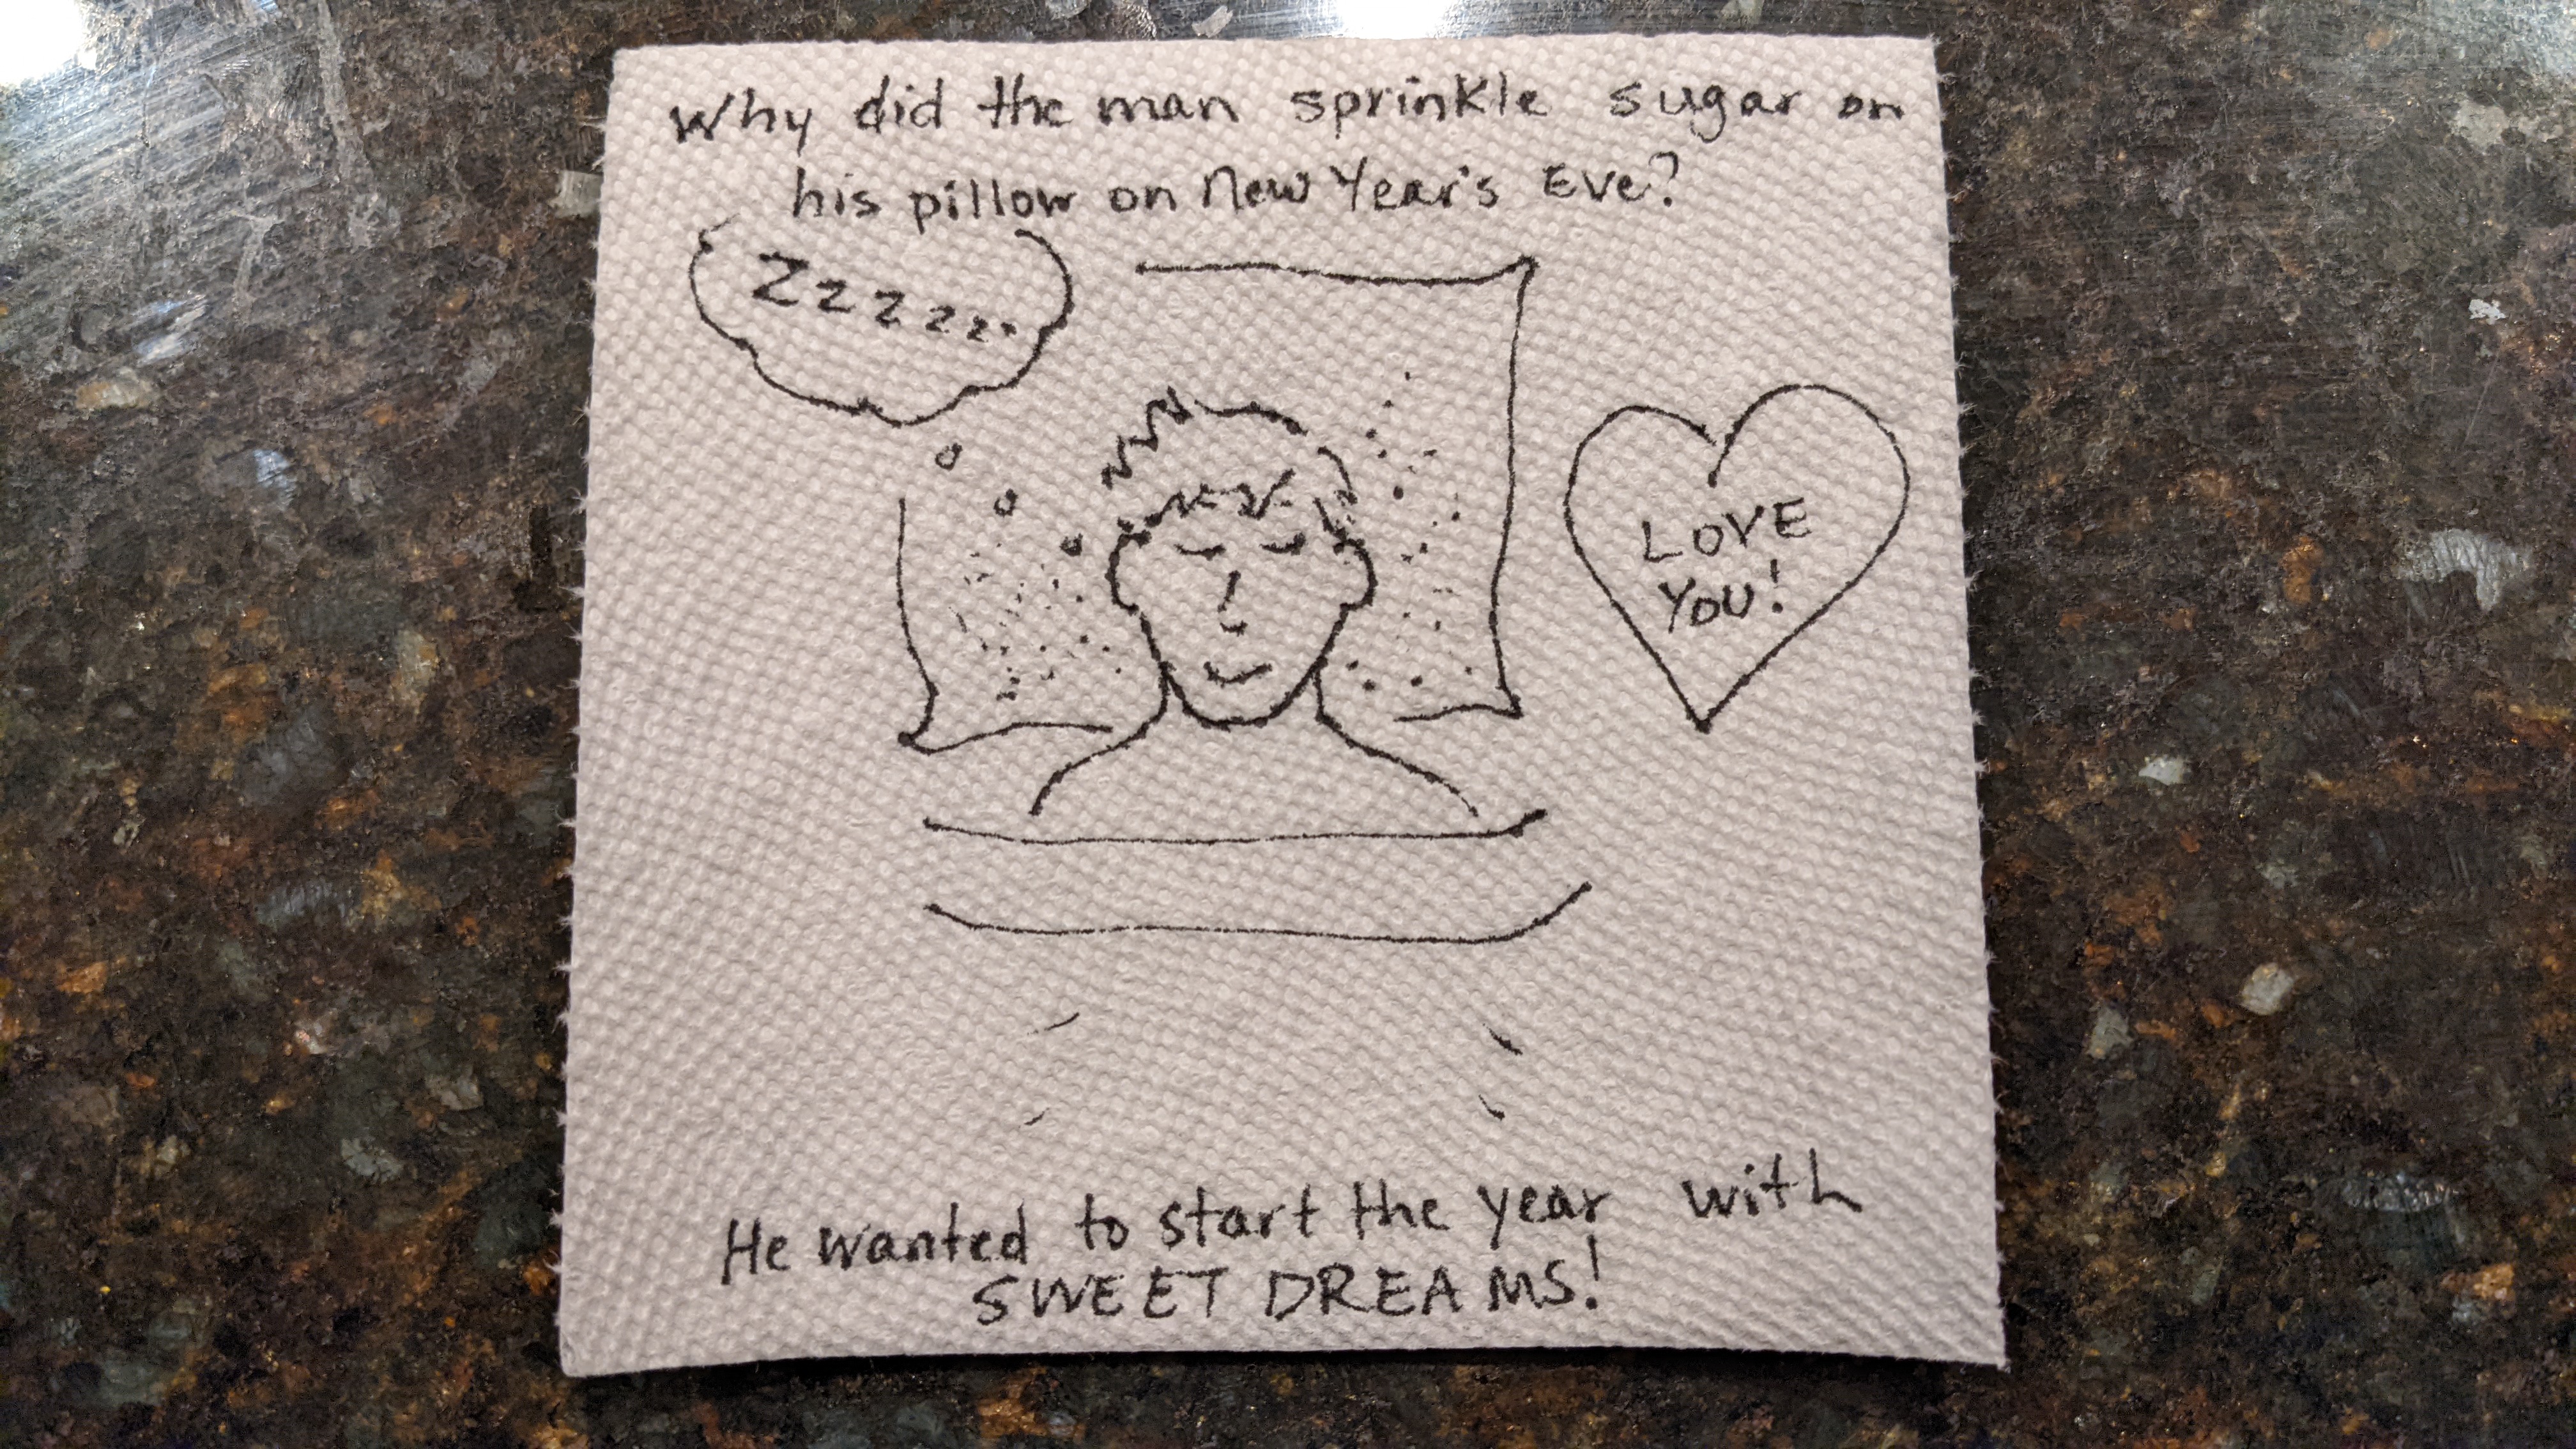 Why did the man sprinkle sugar on
his pillow on New Year's Eve?
Zzzzzz..
LOVE
YOU!
He wanted to start the year with
SWEET DREAMS!